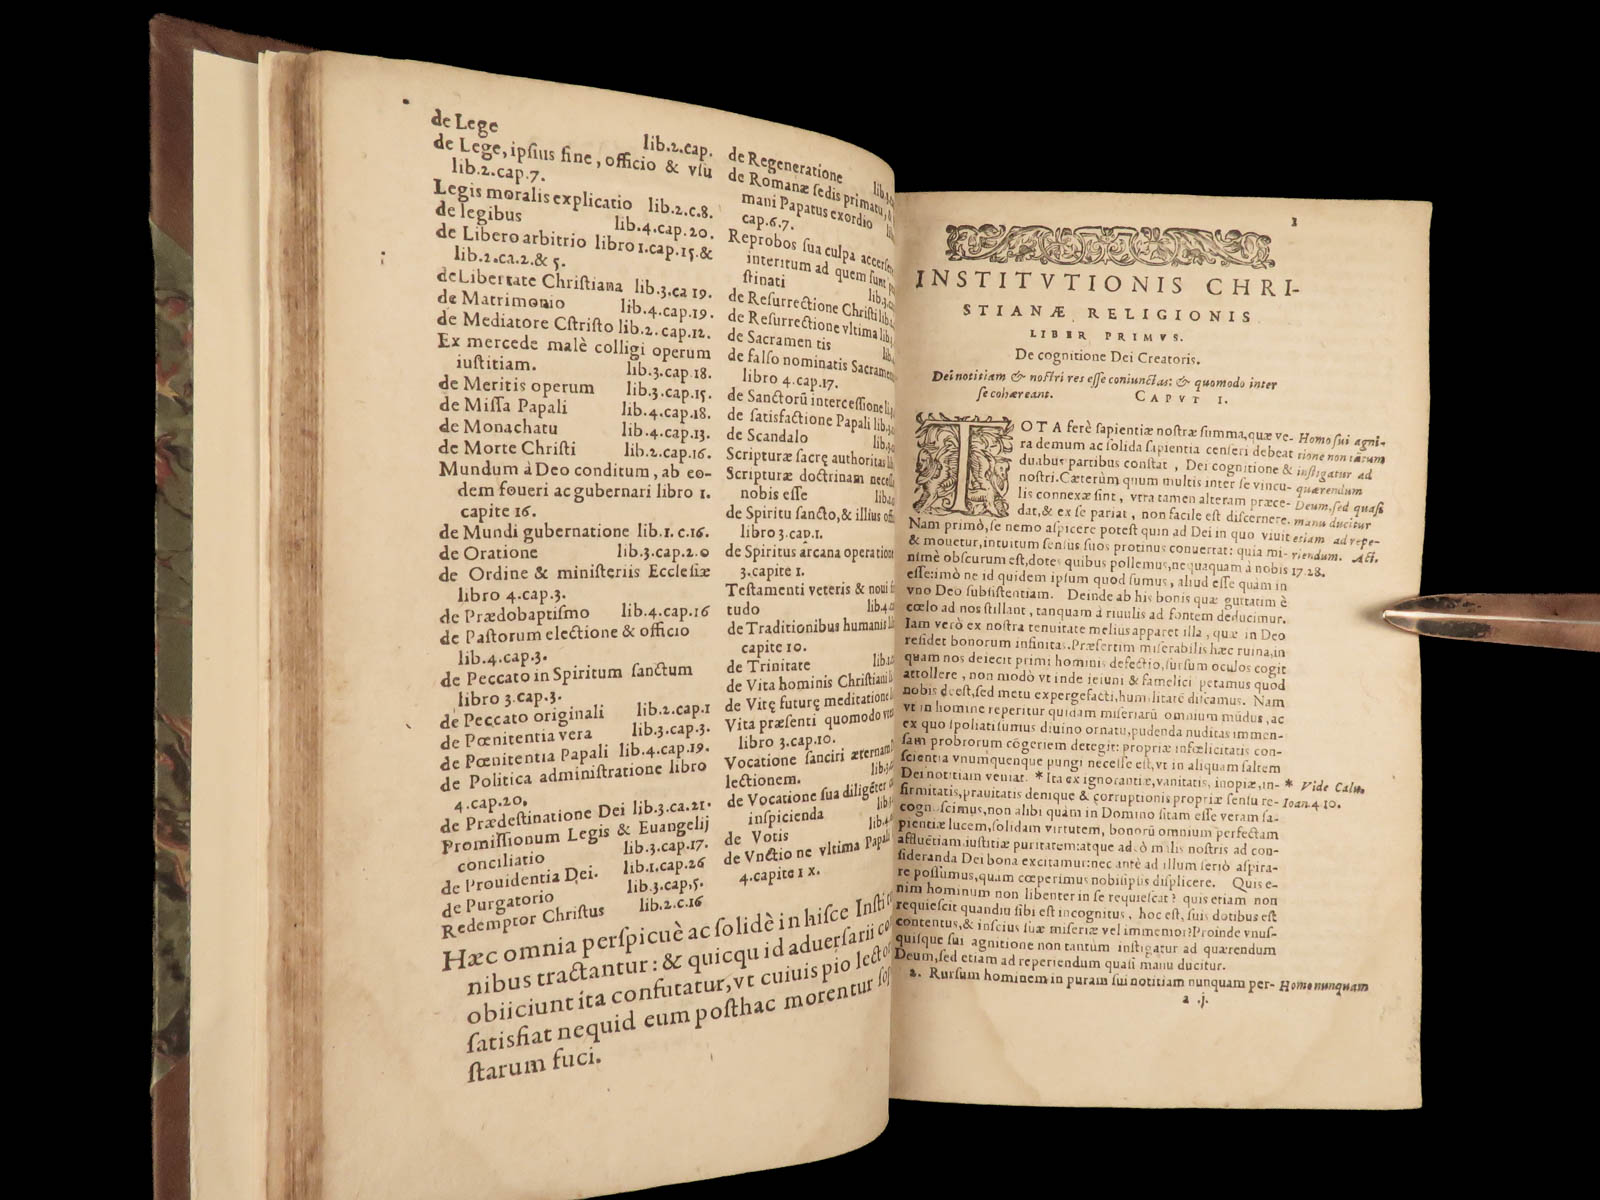 de Lege lib.2.cap.
de Lege, ipſius fine, officio & vſu
lib.2.cap.7.
Legis moralis explicatio lib.2.c.8.
de legibus lib.4.cap.20.
de Libero arbitrio libro 1.cap.15.&
lib.2.ca.2.& 5.
de Libertate Chriſtiana lib.3.ca 19.
de Matrimonio lib.4.cap.19.
de Mediatore Cſtriſto lib.2.cap.12.
Ex mercede malè colligi operum
iuſtitiam. lib.3.cap 18.
de Meritis operum lib.3.cap.15.
de Miſſa Papali lib.4.cap.18.
de Monachatu lib.4.cap.13.
de Morte Chriſti lib.2.cap.16.
Mundum à Deo conditum, ab eo-
dem foueri ac gubernari libro 1.
capite 16.
de Mundi gubernatione lib.1.c.16.
de Oratione lib.3.cap.2.0
de Ordine & miniſteriis Eccleſiæ
libro 4.cap.3.
de Prædobaptiſmo lib.4.cap.16
de Paſtorum electione & officio
lib.4.cap.3.
de Peccato in Spiritum ſanctum
libro 3.cap.3.
de Peccato originali lib.2.cap.1
de Pœnitentia vera lib.3.cap.3.
de Pœnitentia Papali lib.4.cap.19.
de Politica adminiſtratione libro
4.cap.20.
de Prædeſtinatione Dei lib.3.ca.21.
Promiſſionum Legis & Euangelij
conciliatio lib.3.cap.17.
de Prouidentia Dei. lib.1.cap.26
de Purgatorio lib.3.cap,5.
Redemptor Chriſtus lib.2.c.16
de Regeneratione lib.3.
de Romanæ ſedis primatu, &
mani Papatus exordio
cap.6.7.
Reprobos ſua culpa
interitum ad quem ſunt
ſtinati
de Reſurrectione Chriſti lib.
de Reſurrectione vltima lib.
de Sacramen tis
de falſo nominatis
libro 4.cap.17.
de Sanctorū interceſſione
de ſatisfactione Papali lib.3.
de Scandalo
Scripturæ ſacrę authoritas
Scripturæ doctrinam
nobis eſſe lib.
de Spiritu ſancto,& illius
libro 3.cap.1.
de Spiritus arcana
3.capite 1.
Teſtamenti veteris & noui
tudo lib.
de Traditionibus humanis
capite 10.
de Trinitate lib.
de Vita hominis Chriſtiani
de Vitę futurę meditatione
Vita præſenti quomodo
libro 3.cap.10.
Vocatione ſanciri
lectionem.
de Vocatione ſua
inſpicienda lib.
de Votis lib.4.
de Vnctio ne vltima Papali
4.capite 1 x.
Hæc omnia perſpicuè ac ſolidè in hiſce
nibus tractantur: & quicqu id aduerſarii
obiiciunt ita confutatur,vt cuiuis pio
ſatisfiat nequid eum poſthac morentur
ſtarum fuci.
1
INSTITVTIONIS CHRI-
STIANÆ RELIGIONIS
LIBER PRIMVS.
De cognitione Dei Creatoris.
Dei notitiam & noſtri res eſſe coniunctas: & quomodo inter
ſe cohæreant. CAPVT I.
TOTA ferè ſapientiæ noſtræ ſumma,quæ ve-
ra demum ac ſolida ſapientia cenſeri debeat
duabus partibus conſtat , Dei cognitione &
noſtri.Cæterùm quum multis inter ſe vincu-
lis connexæ ſint, vtra tamen alteram præce-
dat,& ex ſe pariat , non facile eſt diſcernere.
Nam primò,ſe nemo aſpicere poteſt quin ad Dei in quo viuit
& mouetur,intuitum ſenſus ſuos protinus conuertat: quia mi-
nimè obſcurum eſt,dotes quibus pollemus,nequaquam à nobis
eſſe:imò ne id quidem ipſum quod ſumus, aliud eſſe quàm in
vno Deo ſubſiſtentiam. Deinde ab his bonis quæ guttatim è
cœlo ad nos ſtillant , tanquam à riuulis ad fontem deducimur.
Iam verò ex noſtra tenuitate melius apparet illa , quæ in Deo
reſidet bonorum infinitas.Præſertim miſerabilis hæc ruina,in
quam nos deiecit primi hominis defectio,ſurſum oculos cogit
attollere , non modò vt inde ieiuni & famelici petamus quod
nobis deeſt,ſed metu expergefacti,humilitatē diſcamus. Nam
vt in homine reperitur quidam miſeriarū omnium mūdus,ac
ex quo ſpoliati ſumus diuino ornatu,pudenda nuditas immen-
ſam probrorum cōgeriem detegit: propriæ infœlicitatis con-
ſcientia vnumquenque pungi neceſſe eſt,vt in aliquam ſaltem
Dei notitiam veniat. * Ita ex ignorantiæ,vanitatis, inopiæ,in-
firmitatis,prauitatis denique & corruptionis propriæ ſenſu re-
cognoſcimus,non alibi quàm in Domino ſitam eſſe veram ſa-
pientiæ lucem,ſolidam virtutem, bonorū omnium perfectam
affluētiam,iuſtitiæ puritatem:atque adeò malis noſtris ad con-
ſideranda Dei bona excitamur:nec antè ad illum ſeriò aſpira-
re poſſumus,quàm cœperimus nobiſipſis diſplicere. Quis e-
nim hominum non libenter in ſe requieſcat? quis etiam non
requieſcit quandiu ſibi eſt incognitus , hoc eſt, ſuis dotibus eſt
contentus,& inſcius ſuæ miſeriæ vel immemor?Proinde vnuſ-
quiſque ſui agnitione non tantùm inſtigatur ad quærendum
Deum,ſed etiam ad reperiendum quaſi manu ducitur.
2. Rurſum hominem in puram ſui notitiam nunquam per-
a .j.
Homo ſui agni-
tione non tātum
inſtigatur ad
quærendum
Deum,ſed quaſi
manu ducitur
etiam ad repe-
riendum. Act.
17.28.
* Vide Calu.
Ioan.4 10.
Homo nunquam